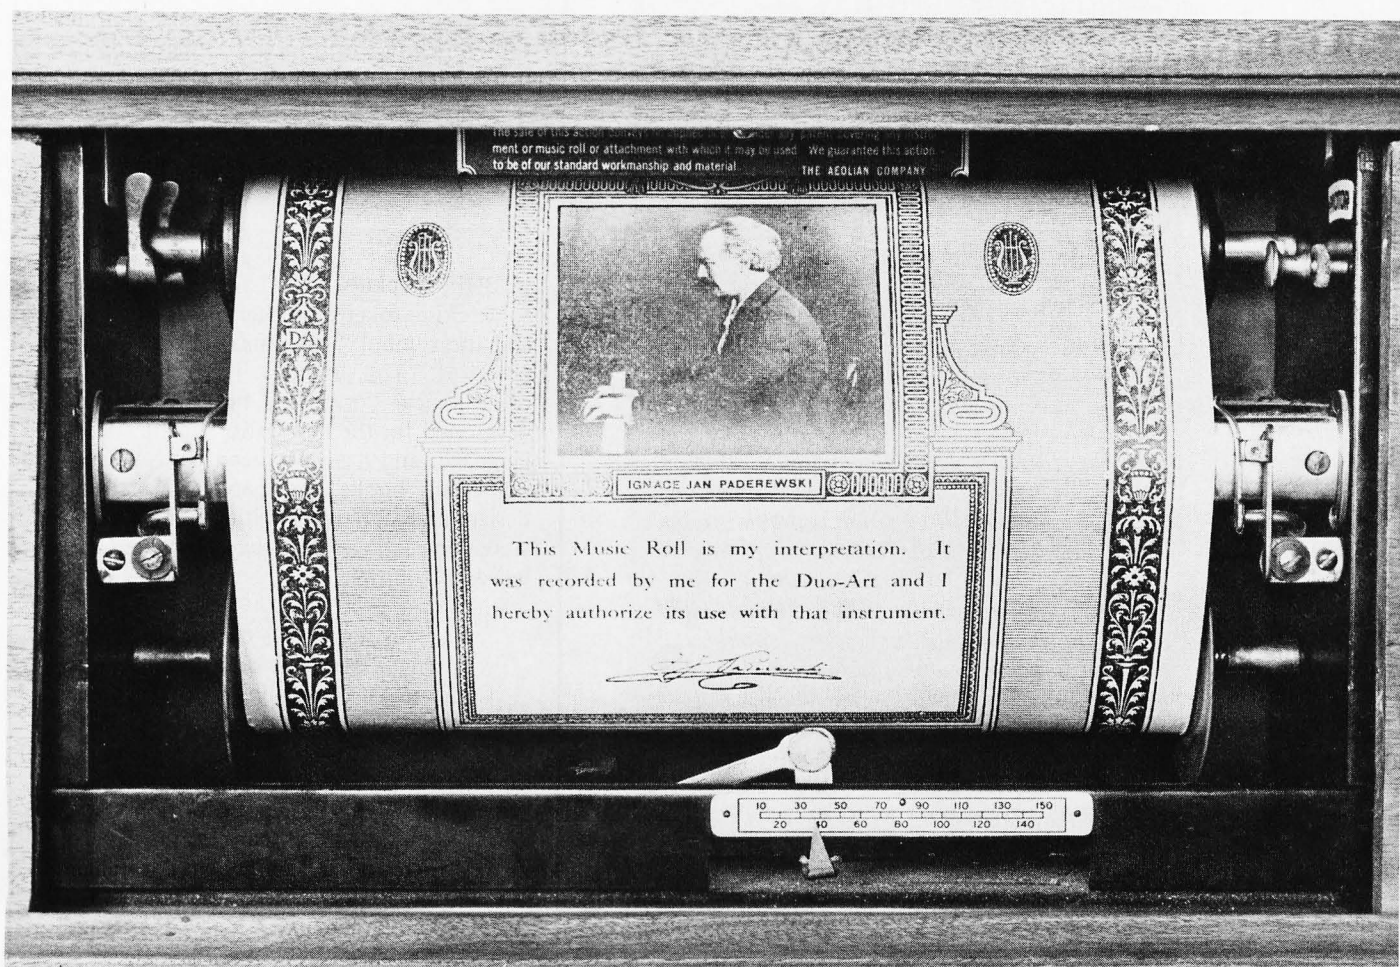 The sale of this action conveys no any patent covering any
ment or music roll or attachment with which it may be used We guarantee this action
to be of our standard workmanship and material.
THE AEOLIAN COMPANY
DA
A
IGNACE JAN PADEREWSKI
This Music Roll is my interpretation. It
was recorded by me for the Duo-Art and I
hereby authorize its use with that instrument.
I J Paderewski
10 30 50 70 90 110 130 150
20 40 60 80 100 120 140